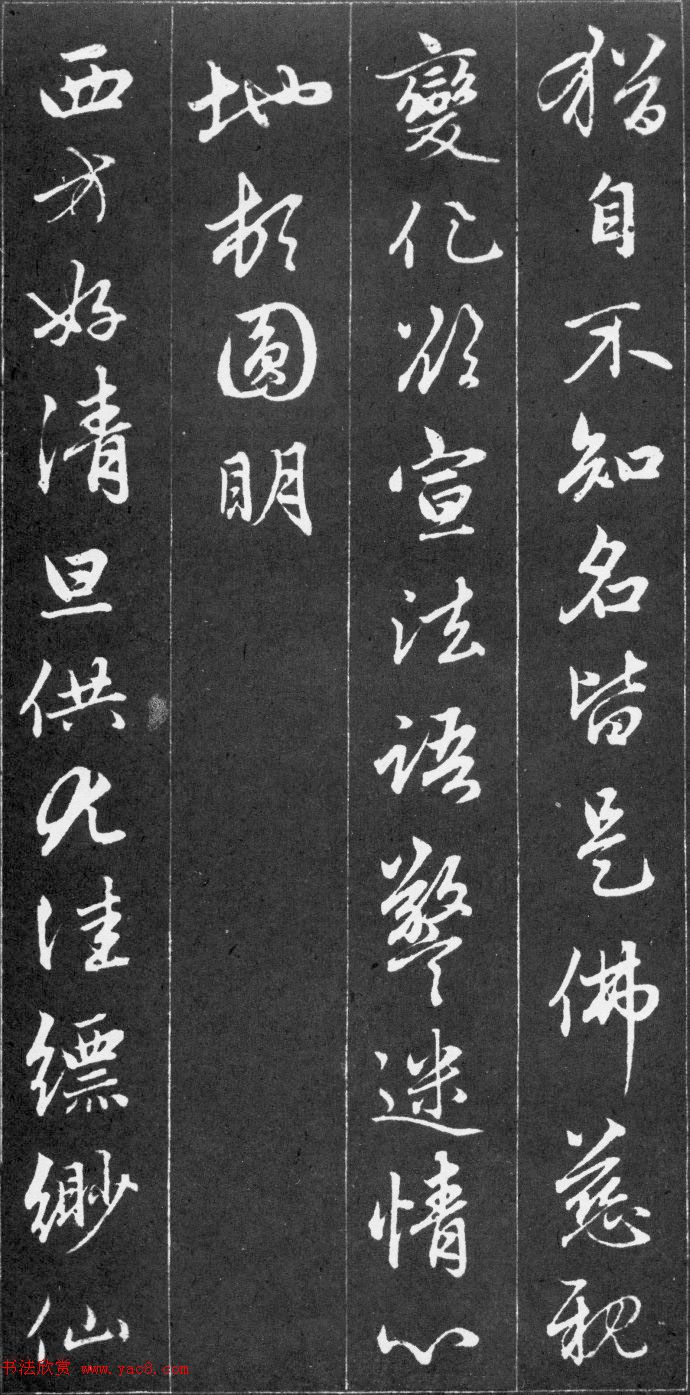 猶自不知名皆是佛慈親
變化欲宣法語警迷情心
地頓圓明
西方好清旦供尤佳縹緲仙
书法欣赏 www.yac8.com